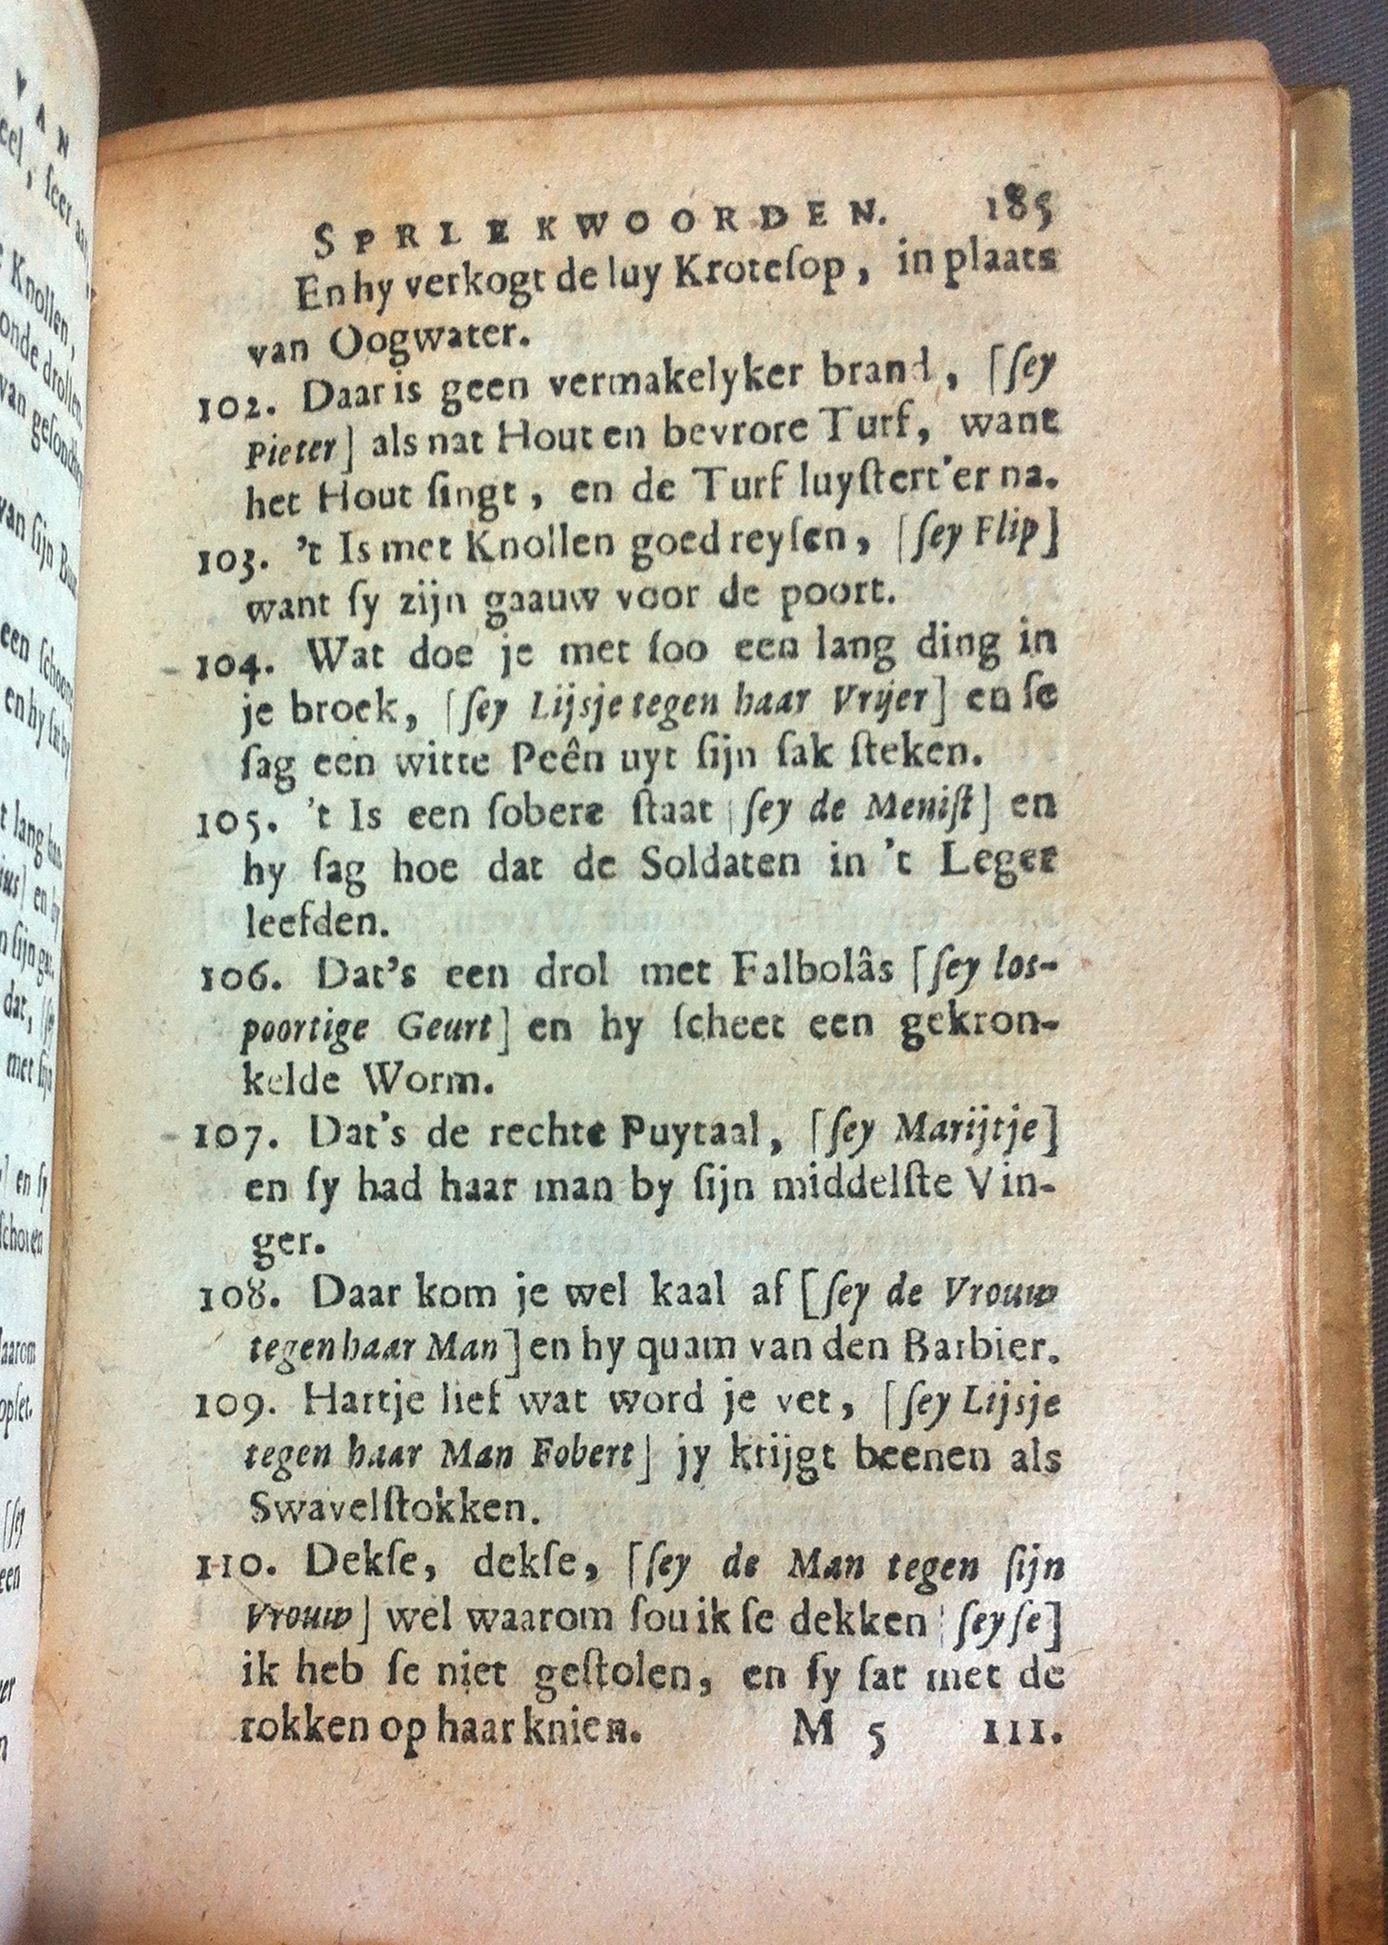 SPRLEKWOORDEN. 185
En hy verkogt de luy Krotesop, in plaats
van Oogwater.
102. Daar is geen vermakelyker brand, [sey
Pieter] als nat Hout en bevrore Turf, want
het Hout singt, en de Turf luystert'er na.
103. 't Is met Knollen goed reysen, [sey Flip]
want sy zijn gaauw voor de poort.
104. Wat doe je met soo een lang ding in
je broek, [sey Lijsje tegen haar Vrijer] en se
sag een witte Peên uyt sijn sak steken.
105. 't Is een sobere staat [sey de Menist] en
hy sag hoe dat de Soldaten in 't Leger
leefden.
106. Dat's een drol met Falbolâs [sey los-
poortige Geurt] en hy scheet een gekron-
kelde Worm.
107. Dat's de rechte Puytaal, [sey Marijtje]
en sy had haar man by sijn middelste Vin-
ger.
108. Daar kom je wel kaal af [sey de Vrouw
tegen haar Man] en hy quam van den Barbier.
109. Hartje lief wat word je vet, [sey Lijsje
tegen haar Man Fobert] jy krijgt beenen als
Swavelstokken.
110. Dekse, dekse, [sey de Man tegen sijn
Vrouw] wel waarom sou ik se dekken [sey se]
ik heb se niet gestolen, en sy sat met de
rokken op haar knien. M 5 111.